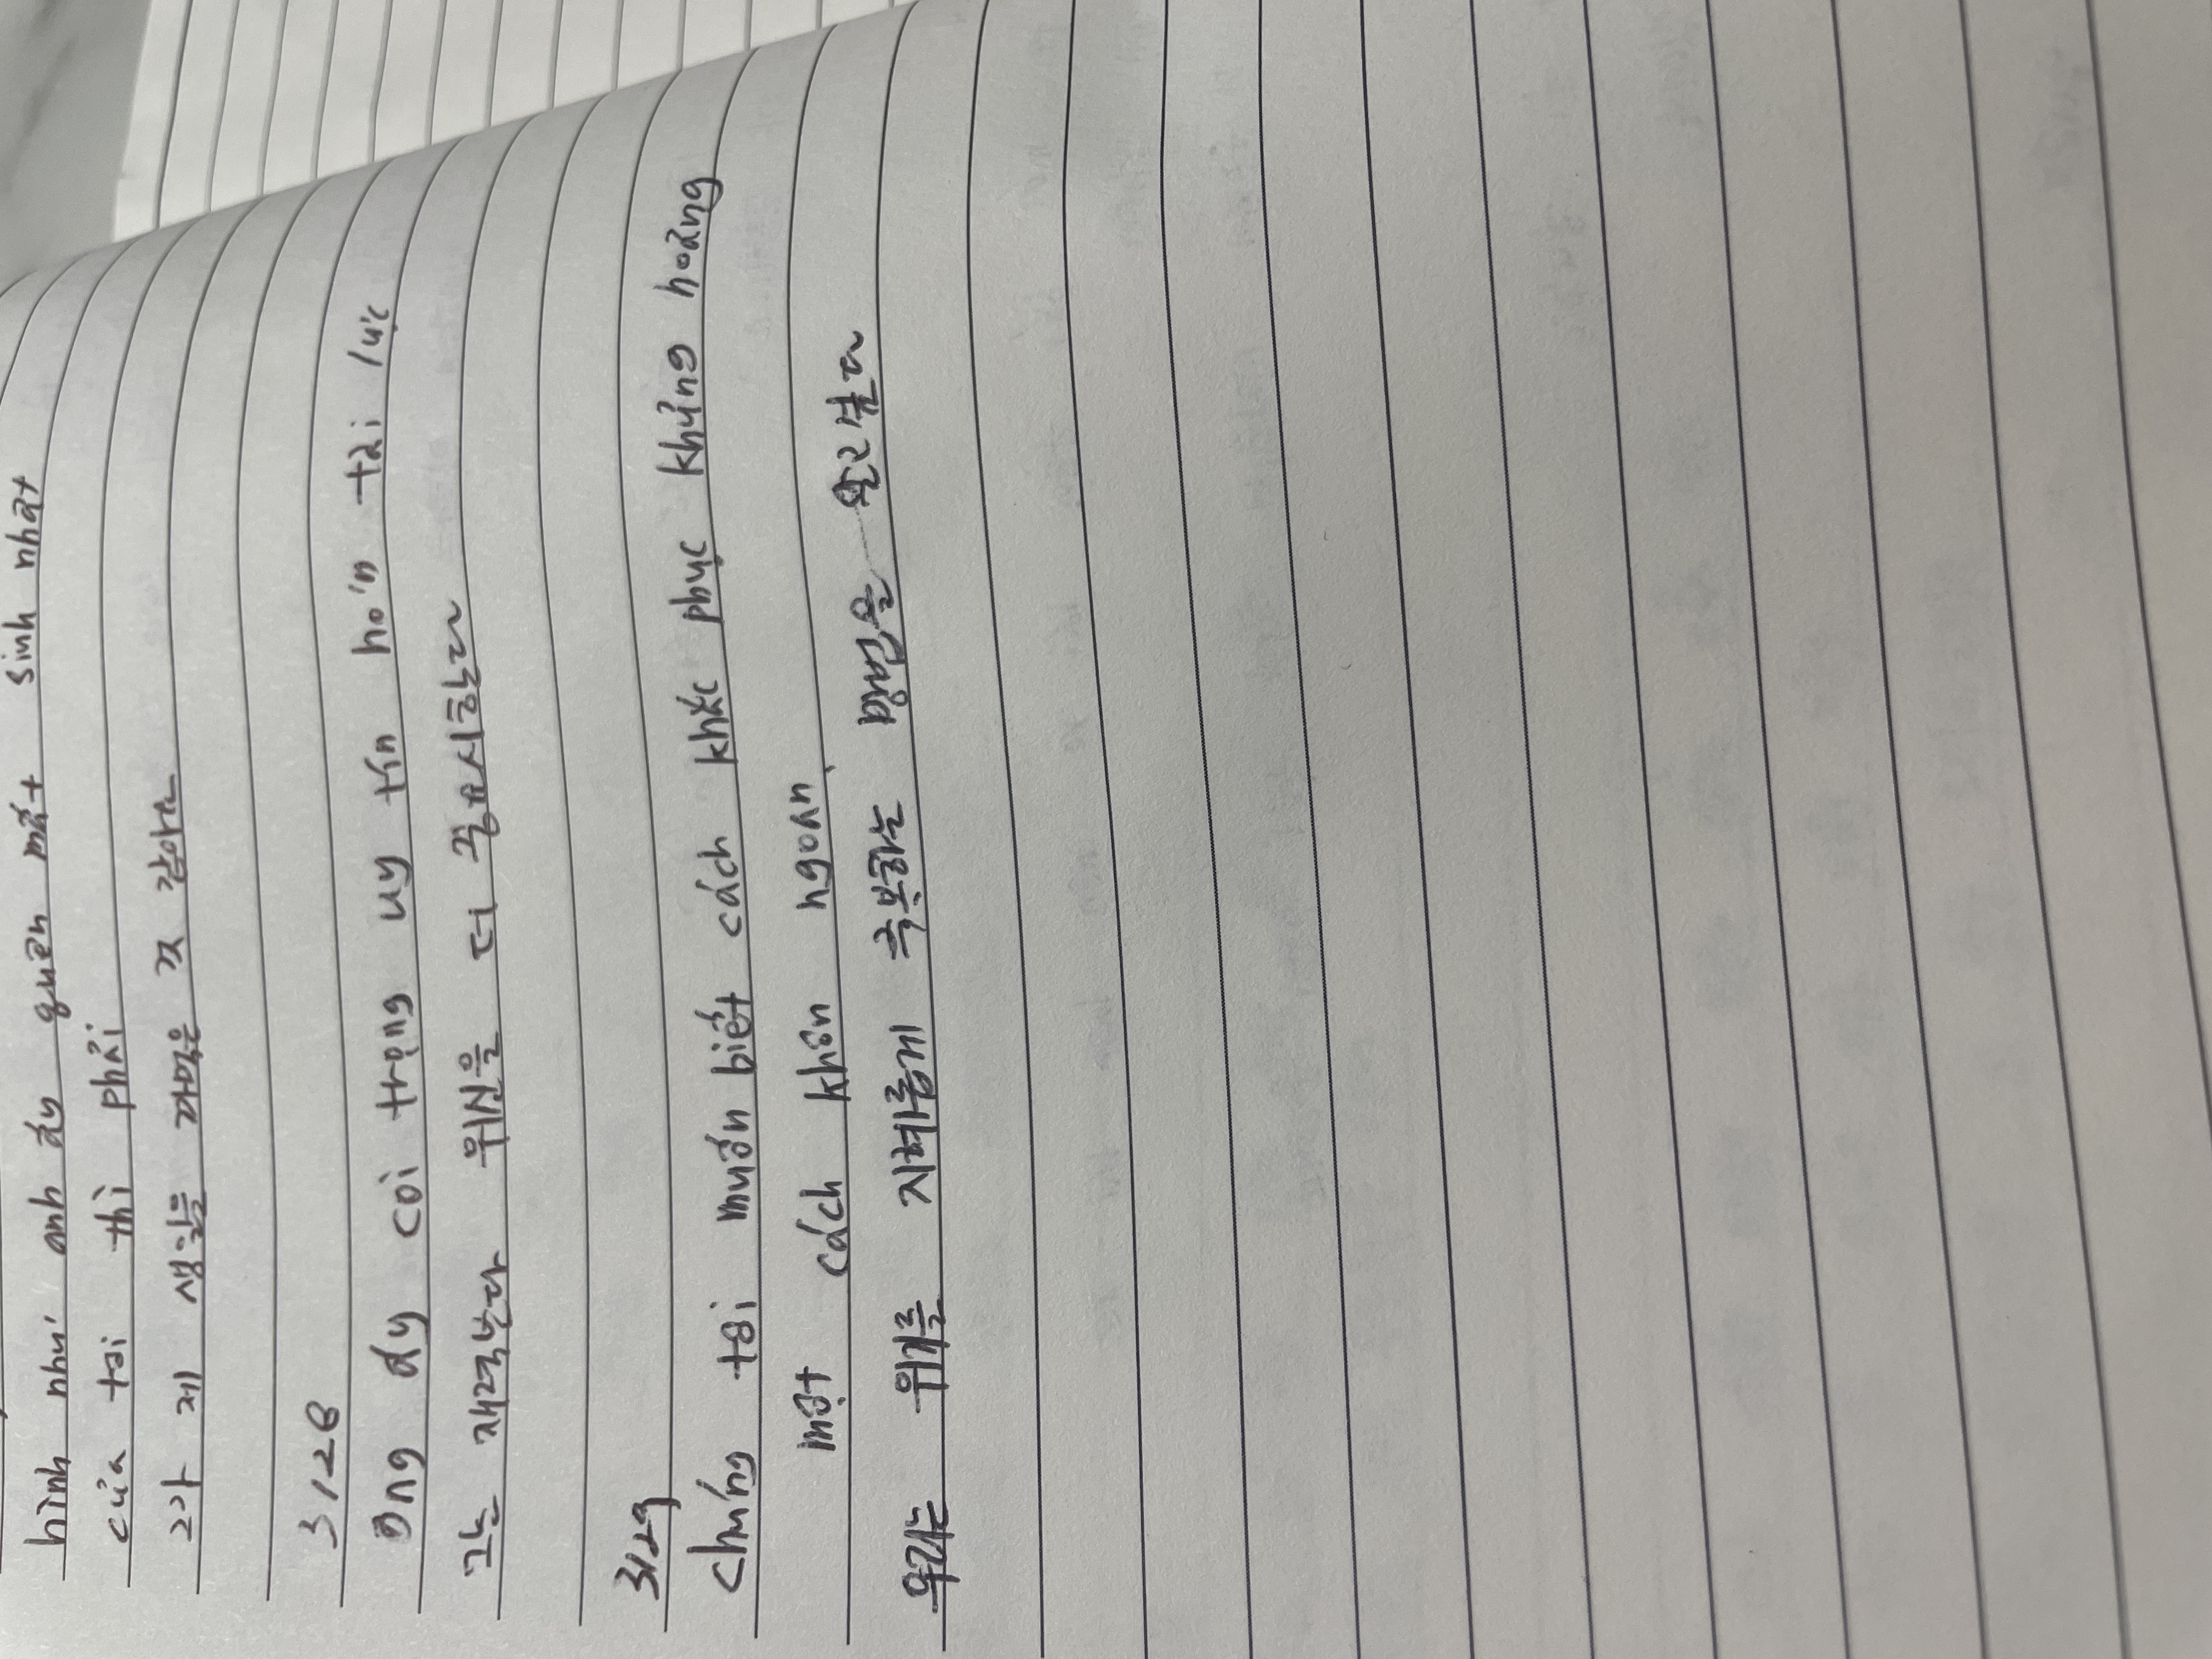 hình như anh ấy quên mất sinh nhật
của tôi thì phải
그가 제 생일을 까먹은 것 같아요
3/28
Ông ấy coi trọng uy tín hơn tài lực
그는 재력보다 위신을 더 중요시한다
3/29
Chúng tôi muốn biết cách khắc phục khủng hoảng
một cách khôn ngoan
우리는 위기를 지혜롭게 극복하는 방법을 알고싶다